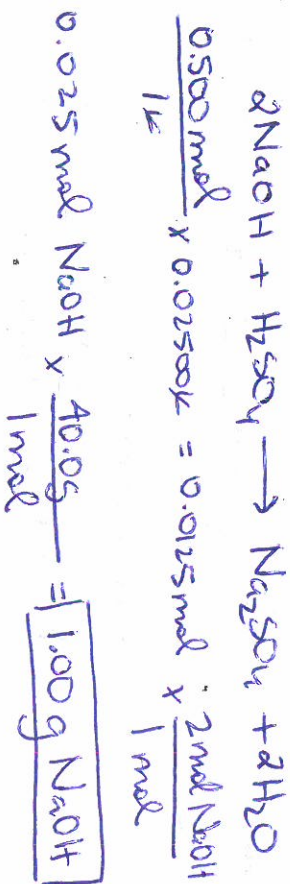 2NaOH + H₂SO₄ → Na₂SO₄ + 2H₂O
0.500 mol / 1L × 0.0250L = 0.0125 mol × 2 mol NaOH / 1 mol
0.025 mol NaOH × 40.0g / 1 mol = 1.00 g NaOH